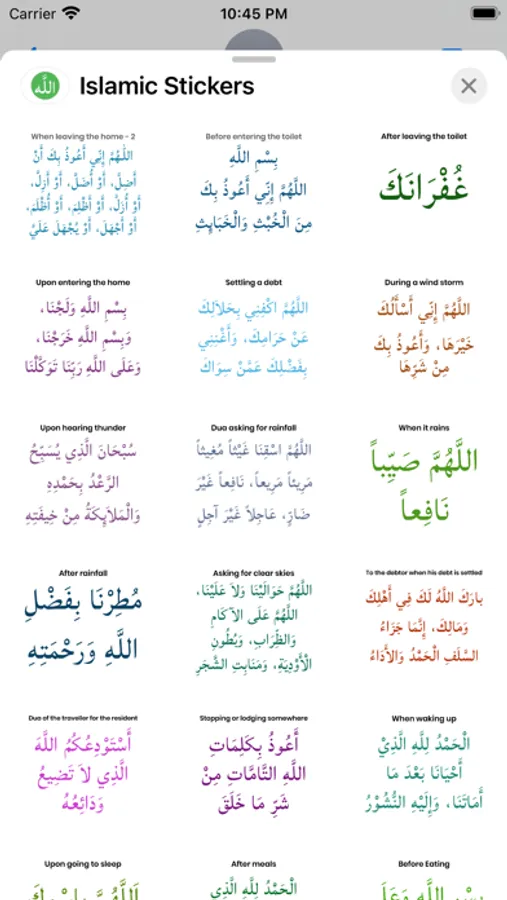 Carrier
10:45 PM
الله
Islamic Stickers
When leaving the home - 2
اللَّهُمَّ إِنِّي أَعُوذُ بِكَ أَنْ
أَضِلَّ، أَوْ أُضَلَّ، أَوْ أَزِلَّ،
أَوْ أُزَلَّ، أَوْ أَظْلِمَ، أَوْ أُظْلَمَ،
أَوْ أَجْهَلَ، أَوْ يُجْهَلَ عَلَيَّ
Before entering the toilet
بِسْمِ اللَّهِ
اللَّهُمَّ إِنِّي أَعُوذُ بِكَ
مِنَ الْخُبْثِ وَالْخَبَايِثِ
After leaving the toilet
غُفْرَانَكَ
Upon entering the home
بِسْمِ اللَّهِ وَلَجْنَا،
وَبِسْمِ اللَّهِ خَرَجْنَا،
وَعَلَى اللَّهِ رَبِّنَا تَوَكَّلْنَا
Settling a debt
اللَّهُمَّ اكْفِنِي بِحَلاَلِكَ
عَنْ حَرَامِكَ، وَأَغْنِنِي
بِفَضْلِكَ عَمَّنْ سِوَاكَ
During a wind storm
اللَّهُمَّ إِنِّي أَسْأَلُكَ
خَيْرَهَا، وَأَعُوذُ بِكَ
مِنْ شَرِّهَا
Upon hearing thunder
سُبْحَانَ الَّذِي يُسَبِّحُ
الرَّعْدُ بِحَمْدِهِ
وَالْمَلاَيِكَةُ مِنْ خِيفَتِهِ
Dua asking for rainfall
اللَّهُمَّ اسْقِنَا غَيْثاً مُغِيثاً
مَرِيئاً مَرِيعاً، نَافِعاً غَيْرَ
ضَارٍّ، عَاجِلاً غَيْرَ آجِلٍ
When it rains
اللَّهُمَّ صَيِّباً
نَافِعاً
After rainfall
مُطِرْنَا بِفَضْلِ
اللَّهِ وَرَحْمَتِهِ
Asking for clear skies
اللَّهُمَّ حَوَالَيْنَا وَلاَ عَلَيْنَا،
اللَّهُمَّ عَلَى الآكَامِ
وَالظِّرَابِ، وَبُطُونِ
الْأَوْدِيَةِ، وَمَنَابِتِ الشَّجَرِ
To the debtor when his debt is settled
بارَكَ اللَّهُ لَكَ فِي أَهْلِكَ
وَمَالِكَ، إِنَّمَا جَزَاءُ
السَّلَفِ الْحَمْدُ وَالأَدَاءُ
Dua of the traveller for the resident
أَسْتَوْدِعُكُمُ اللَّهَ
الَّذِي لاَ تَضِيعُ
وَدَائِعُهُ
Stopping or lodging somewhere
أَعُوذُ بِكَلِمَاتِ
اللَّهِ التَّامَّاتِ مِنْ
شَرِّ مَا خَلَقَ
When waking up
الْحَمْدُ لِلَّهِ الَّذِيْ
أَحْيَانَا بَعْدَ مَا
أَمَاتَنَا، وَإِلَيْهِ النُّشُوْرُ
Upon going to sleep
After meals
الْحَمْدُ لِلَّهِ الَّذِي
Before Eating
بِسْمِ اللَّهِ وَعَلَى